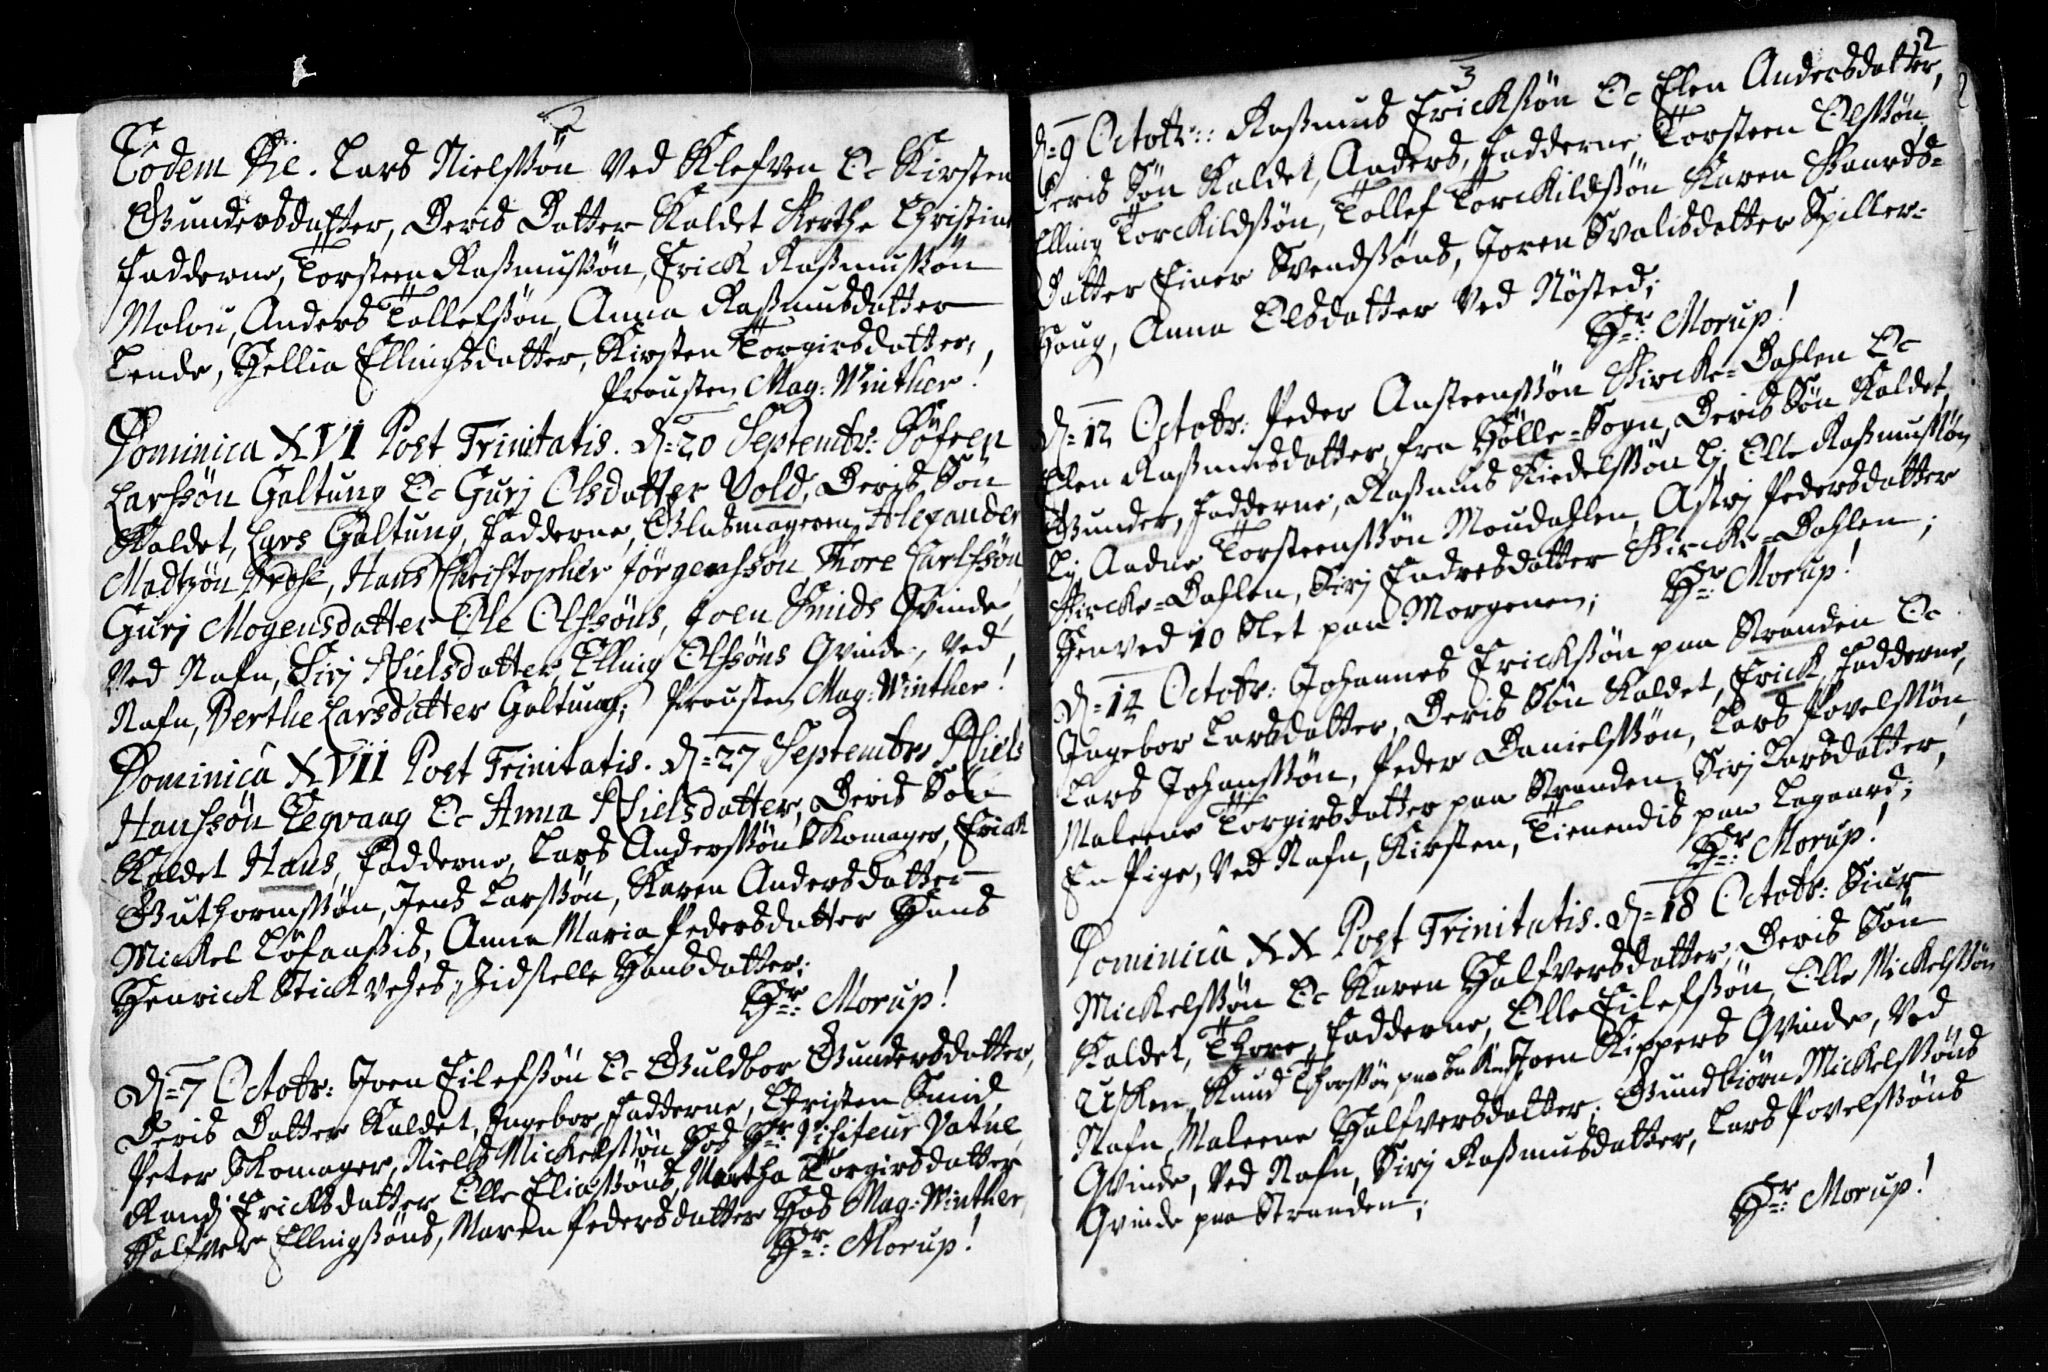 2
Eodem Die. Lars Nielssøn Ved Klefven Oc Kirsten
Gundersdatter, Deris Datter Kaldet Berthe Christina
Fadderne, Torsteen Rasmussøn, Erick Rasmussøn
Anders Tollefsøn, Anna Rasmusdatter
Lende, Hellia Ellingsdatter, Kirsten Torgirsdatter,
Prousten Mag: Winther!
Dominica XVI Post Trinitatis. D=20 Septembr: Søfren
Larssøn Galtung Oc Gurj Olsdatter Vold, Deris Søn
Kaldet, Lars Galtung, Fadderne, Glasmageren Alexander
Madtzøn Hans Christopher Jörgenssøn Tore Carlssøn,
Gurj Mogensdatter Ole Olssøns, Joen Smids Qvinde,
Ved Nafn, Sirj Nielsdatter, Elling Olssøns Qvinde, Ved
Nafn, Berthe Larsdatter Galtung; Prousten Mag: Winther!
Dominica XVII Post Trinitatis. D=27 Septembr. Niels
Hanssøn Tegvaag Oc Anna Nielsdatter, Deris Søn
Kaldet Hans, Fadderne, Lars Anderssøn Skomager, Erick
Guthormssøn, Jens Larssøn, Karen Andersdatter
Mickel Anna Maria Pedersdatter Hans
Henrick Zidselle Hansdatter;
Hr: Morup!
D=7 Octobr: Joen Eilefssøn Oc Guldbor Gundersdatter,
Deris Datter Kaldet, Ingebor, Fadderne, Christen Smid
Peter Skomager, Niels Mickelssøn Hos Hr: Visiteur Vatne,
Randj Ericksdatter Olle Eliassøns, Martha Torgirsdatter
Halfver Ellingssøns, Maren Pedersdatter Hos Mag: Winther,
Hr: Morup!
3
2
D=9 Octobr:: Rasmus Ericksøn Oc Elen Andersdatter,
Deris Søn Kaldet, Anders, Fadderne, Torsteen Olssøn,
Elling Torckildssøn, Tollef Torckildssøn Karen
Datter Einer Svendssøns, Joren Spiller-
Haug, Anna Olsdatter Ved Nøsted;
Hr: Morup!
D=12 Octobr: Peder Ansteenssøn Kircke-Dahlen Oc
Elen Rasmusdatter, fra Hølle-Sogn, Deris Søn Kaldet,
Gunder, Fadderne, Rasmus Kiedelssøn Lj, Olle Rasmussøn
Lj Aadne Torsteenssøn Moudahlen, Astrj Pedersdatter
Kircke-Dahlen, Sirj Endresdatter Kircke-Dahlen;
Henved 10 Slet paa Morgenen; Hr: Morup!
D=14 Octobr: Johannes Ericksøn paa Stranden Oc
Ingebor Larsdatter, Deris Søn Kaldet, Erick, Fadderne,
Lars Johanssøn, Peder Danielssøn, Lars Povelssøn,
Maleene Torgirsdatter paa Stranden, Sirj Larsdatter,
En Pige, Ved Nafn, Kirsten, Tienendis paa Lagaard;
Hr: Morup!
Dominica XX Post Trinitatis. D=18 Octobr: Siur
Mickelssøn Oc Karen Halfversdatter, Deris Søn
Kaldet, Thore, Fadderne, Olle Eilefssøn, Olle Mickelssøn
Usken, Knud Thorssøn paa Joen Skippers Qvinde, Ved
Nafn, Maleene Halfversdatter, Gundbiörn Mickelssøns
Qvinde, Ved Nafn, Sirj Rasmusdatter, Lars Povelssøns
Qvinde paa Stranden;
Hr: Morup!